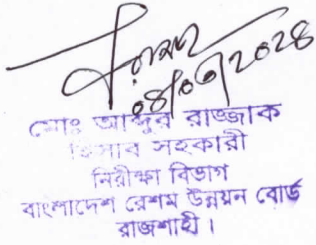 08/০৩/২০২৪
মোঃ আব্দুর রাজ্জাক
হিসাব সহকারী
নিরীক্ষা বিভাগ
বাংলাদেশ রেশম উন্নয়ন বোর্ড
রাজশাহী।